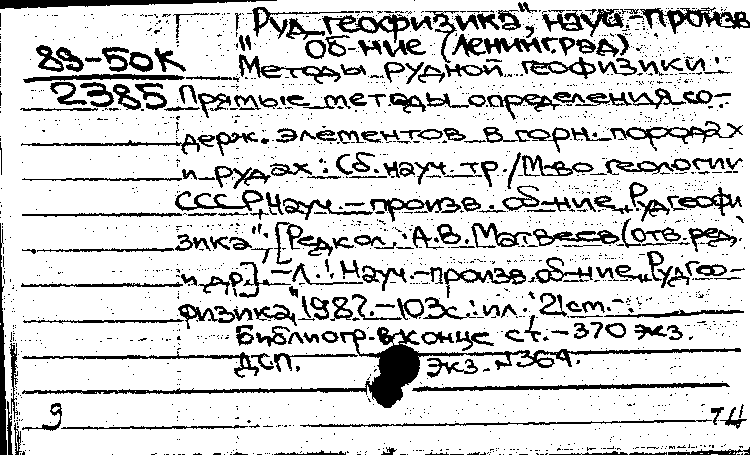 „Рудгеофизика", науч.-произв.
об-ние (Ленинград)
89-50К
Методы рудной геофизики:
2385 Прямые методы определения со-
держ. элементов в горн. породах
и рудах: Сб. науч. тр./М-во геологии
СССР, Науч.-произв. об-ние „Рудгеофи
зика"; [Редкол.: А.В. Матвеев (отв. ред.)
и др.].-Л.: Науч.-произв. об-ние „Рудгео-
физика", 1987.-103с.: ил. 21 см.-
Библиогр. в конце ст.-370 экз.
ДСП. Экз. №364.
9